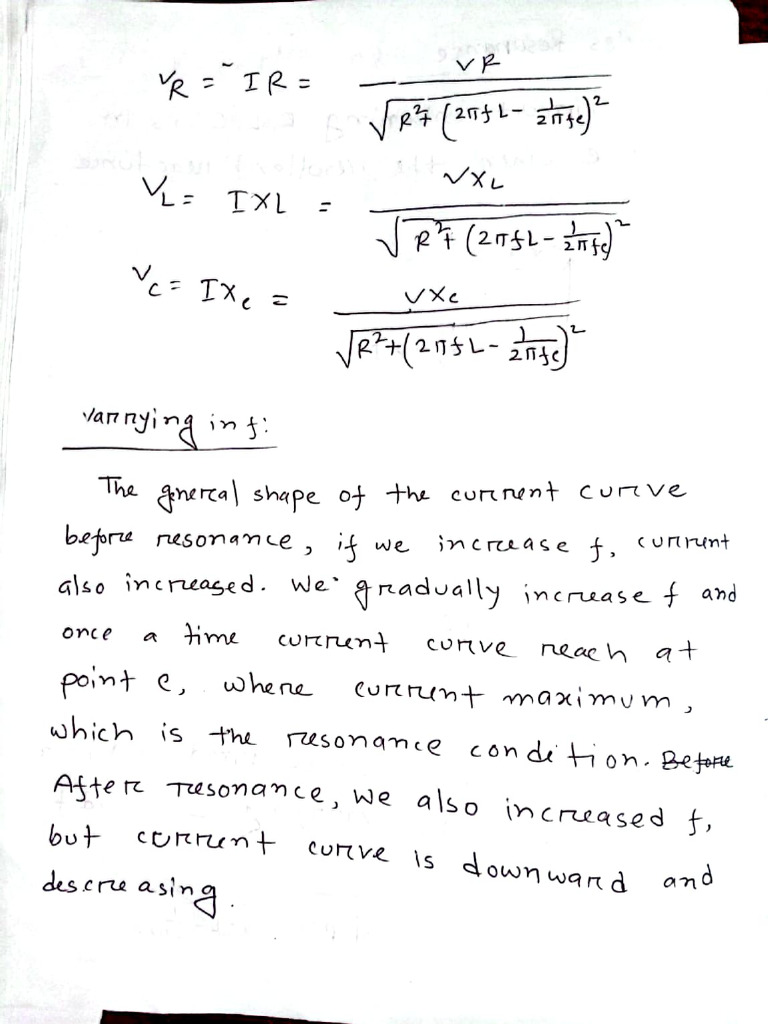 V_R = IR = VR / √(R² + (2πfL - 1/2πfc)²)
V_L = IXL = VX_L / √(R² + (2πfL - 1/2πfc)²)
V_C = IX_c = VX_c / √(R² + (2πfL - 1/2πfc)²)
Varrying in f:
The gneral shape of the current curve
before resonance, if we increase f, current
also increased. We gradually increase f and
once a time current curve reach at
point c, where current maximum,
which is the resonance condition. Before
After resonance, we also increased f,
but current curve is downward and
descreasing.